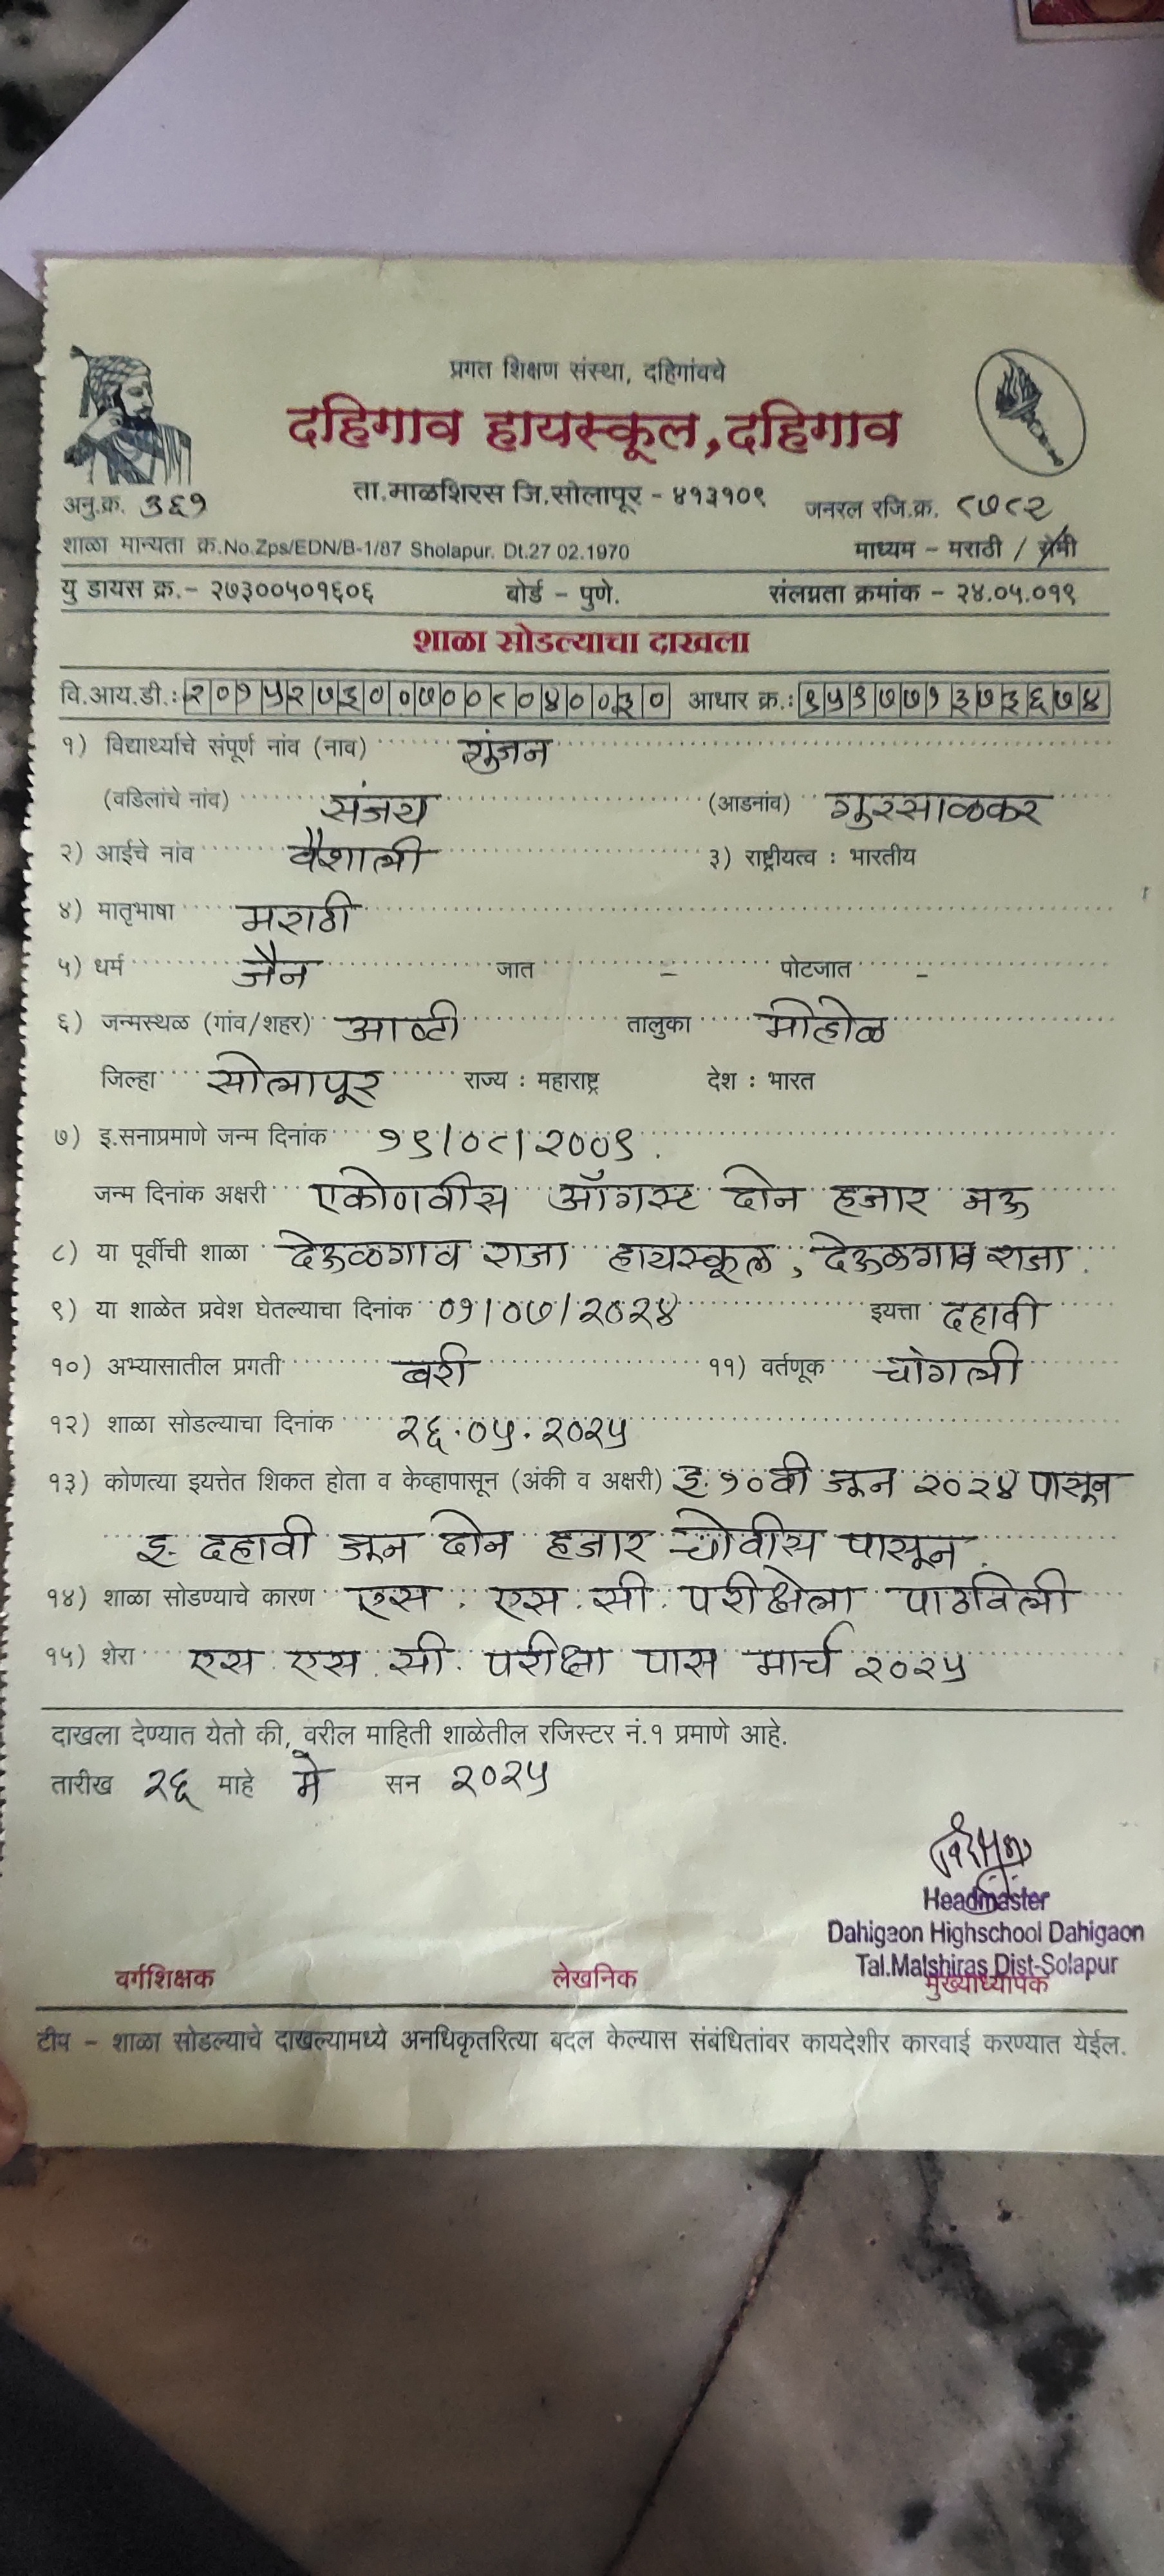 प्रगत शिक्षण संस्था, दहिगांवचे
दहिगाव हायस्कूल,दहिगाव
ता.माळशिरस जि.सोलापूर - ४१३१०९
अनु.क्र. ३६१ जनरल रजि.क्र. ८७८२
शाळा मान्यता क्र.No.Zps/EDN/B-1/87 Sholapur. Dt.27 02.1970 माध्यम - मराठी / सेमी
यु डायस क्र.- २७३००५०१६०६ बोर्ड - पुणे. संलग्नता क्रमांक - २४.०५.०१९
शाळा सोडल्याचा दाखला
वि.आय.डी.: २०१५२७३००७००८०४००३० आधार क्र.: ९५९७७१३७३६७४
१) विद्यार्थ्याचे संपूर्ण नांव (नाव) गुंजन
(वडिलांचे नांव) संजय (आडनांव) गुरसाळकर
२) आईचे नांव वैशाली ३) राष्ट्रीयत्व : भारतीय
४) मातृभाषा मराठी
५) धर्म जैन जात - पोटजात -
६) जन्मस्थळ (गांव/शहर) आष्टी तालुका मोहोळ
जिल्हा सोलापूर राज्य : महाराष्ट्र देश : भारत
७) इ.सनाप्रमाणे जन्म दिनांक १९/०८/२००९.
जन्म दिनांक अक्षरी एकोणवीस ऑगस्ट दोन हजार नऊ
८) या पूर्वीची शाळा देऊळगाव राजा हायस्कूल, देऊळगाव राजा.
९) या शाळेत प्रवेश घेतल्याचा दिनांक ०१/०७/२०२४ इयत्ता दहावी
१०) अभ्यासातील प्रगती बरी ११) वर्तणूक चांगली
१२) शाळा सोडल्याचा दिनांक २६.०५.२०२५
१३) कोणत्या इयत्तेत शिकत होता व केव्हापासून (अंकी व अक्षरी) इ.१०वी जून २०२४ पासून
इ. दहावी जून दोन हजार चोवीस पासून.
१४) शाळा सोडण्याचे कारण एस. एस. सी. परीक्षेला पाठविली
१५) शेरा एस. एस. सी. परीक्षा पास मार्च २०२५
दाखला देण्यात येतो की, वरील माहिती शाळेतील रजिस्टर नं.१ प्रमाणे आहे.
तारीख २६ माहे मे सन २०२५
Headmaster
Dahigaon Highschool Dahigaon
Tal.Malshiras Dist-Solapur
वर्गशिक्षक लेखनिक मुख्याध्यापक
टीप - शाळा सोडल्याचे दाखल्यामध्ये अनधिकृतरित्या बदल केल्यास संबंधितांवर कायदेशीर कारवाई करण्यात येईल.